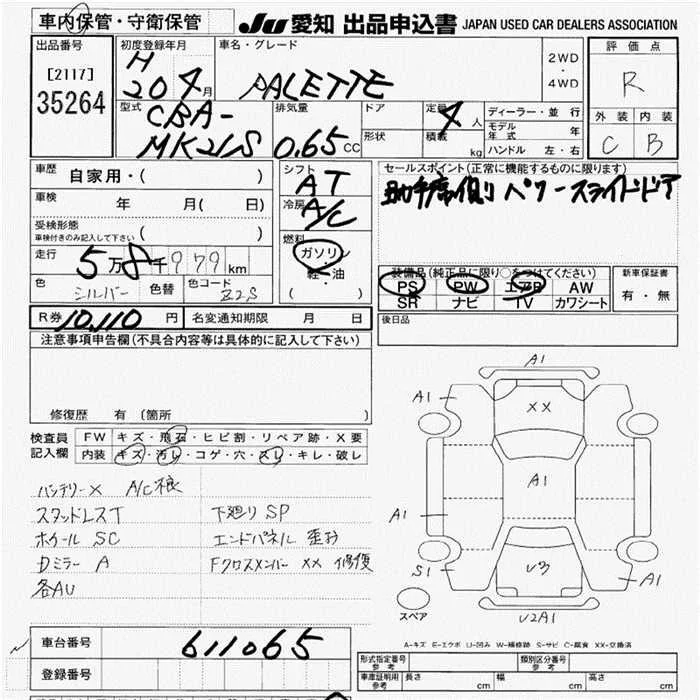 車内保管・守衛保管
JU 愛知 出品申込書 JAPAN USED CAR DEALERS ASSOCIATION
出品番号
[2117]
35264
初度登録年月
H
20年 4月
車名・グレード
PALETTE
2WD
・
4WD
評価点
R
外装 内装
C B
型式
CBA-
MK21S
排気量
0.65 CC
ドア
形状
定員 4 人
積載 kg
ディーラー・並行
モデル年式 年
ハンドル 左・右
車歴 自家用・( )
車検 年 月( 日)
受検形態
車検付きのみ記入して下さい ( )
走行 5万8千979km
色 シルバー 色替 色コード Z2S
シフト
AT
冷房
A/C
燃料
ガソリン
軽・油
( )
セールスポイント(正常に機能するものに限ります)
助手席側リ パワースライドドア
装備品(純正品に限り○をつけてください)
PS PW エアB AW
SR ナビ TV カワシート
新車保証書
有・無
R券 10,110 円 名変通知期限 月 日
後日品
注意事項申告欄(不具合内容等は具体的に記入して下さい)
修復歴 有 (箇所 )
検査員
記入欄
FW キズ・飛石・ヒビ割・リペア跡・X要
内装 キズ・汚レ・コゲ・穴・スレ・キレ・破レ
バッテリーX A/C不良
スタッドレスT 下廻りSP
ホイール SC エンドパネル 歪み
Dミラー A Fクロスメンバー XX 修復
各AU
A1
A1
XX
A1
A1
S1
U3
A1
U2A1
スペア
A-キズ E-エクボ U-凹み W-補修跡 S-サビ C-腐食 XX-交換済
車台番号 611065
登録番号
形式指定番号
参考
類別区分番号
参考
車庫証明用
参考
長さ cm 幅 cm 高さ cm